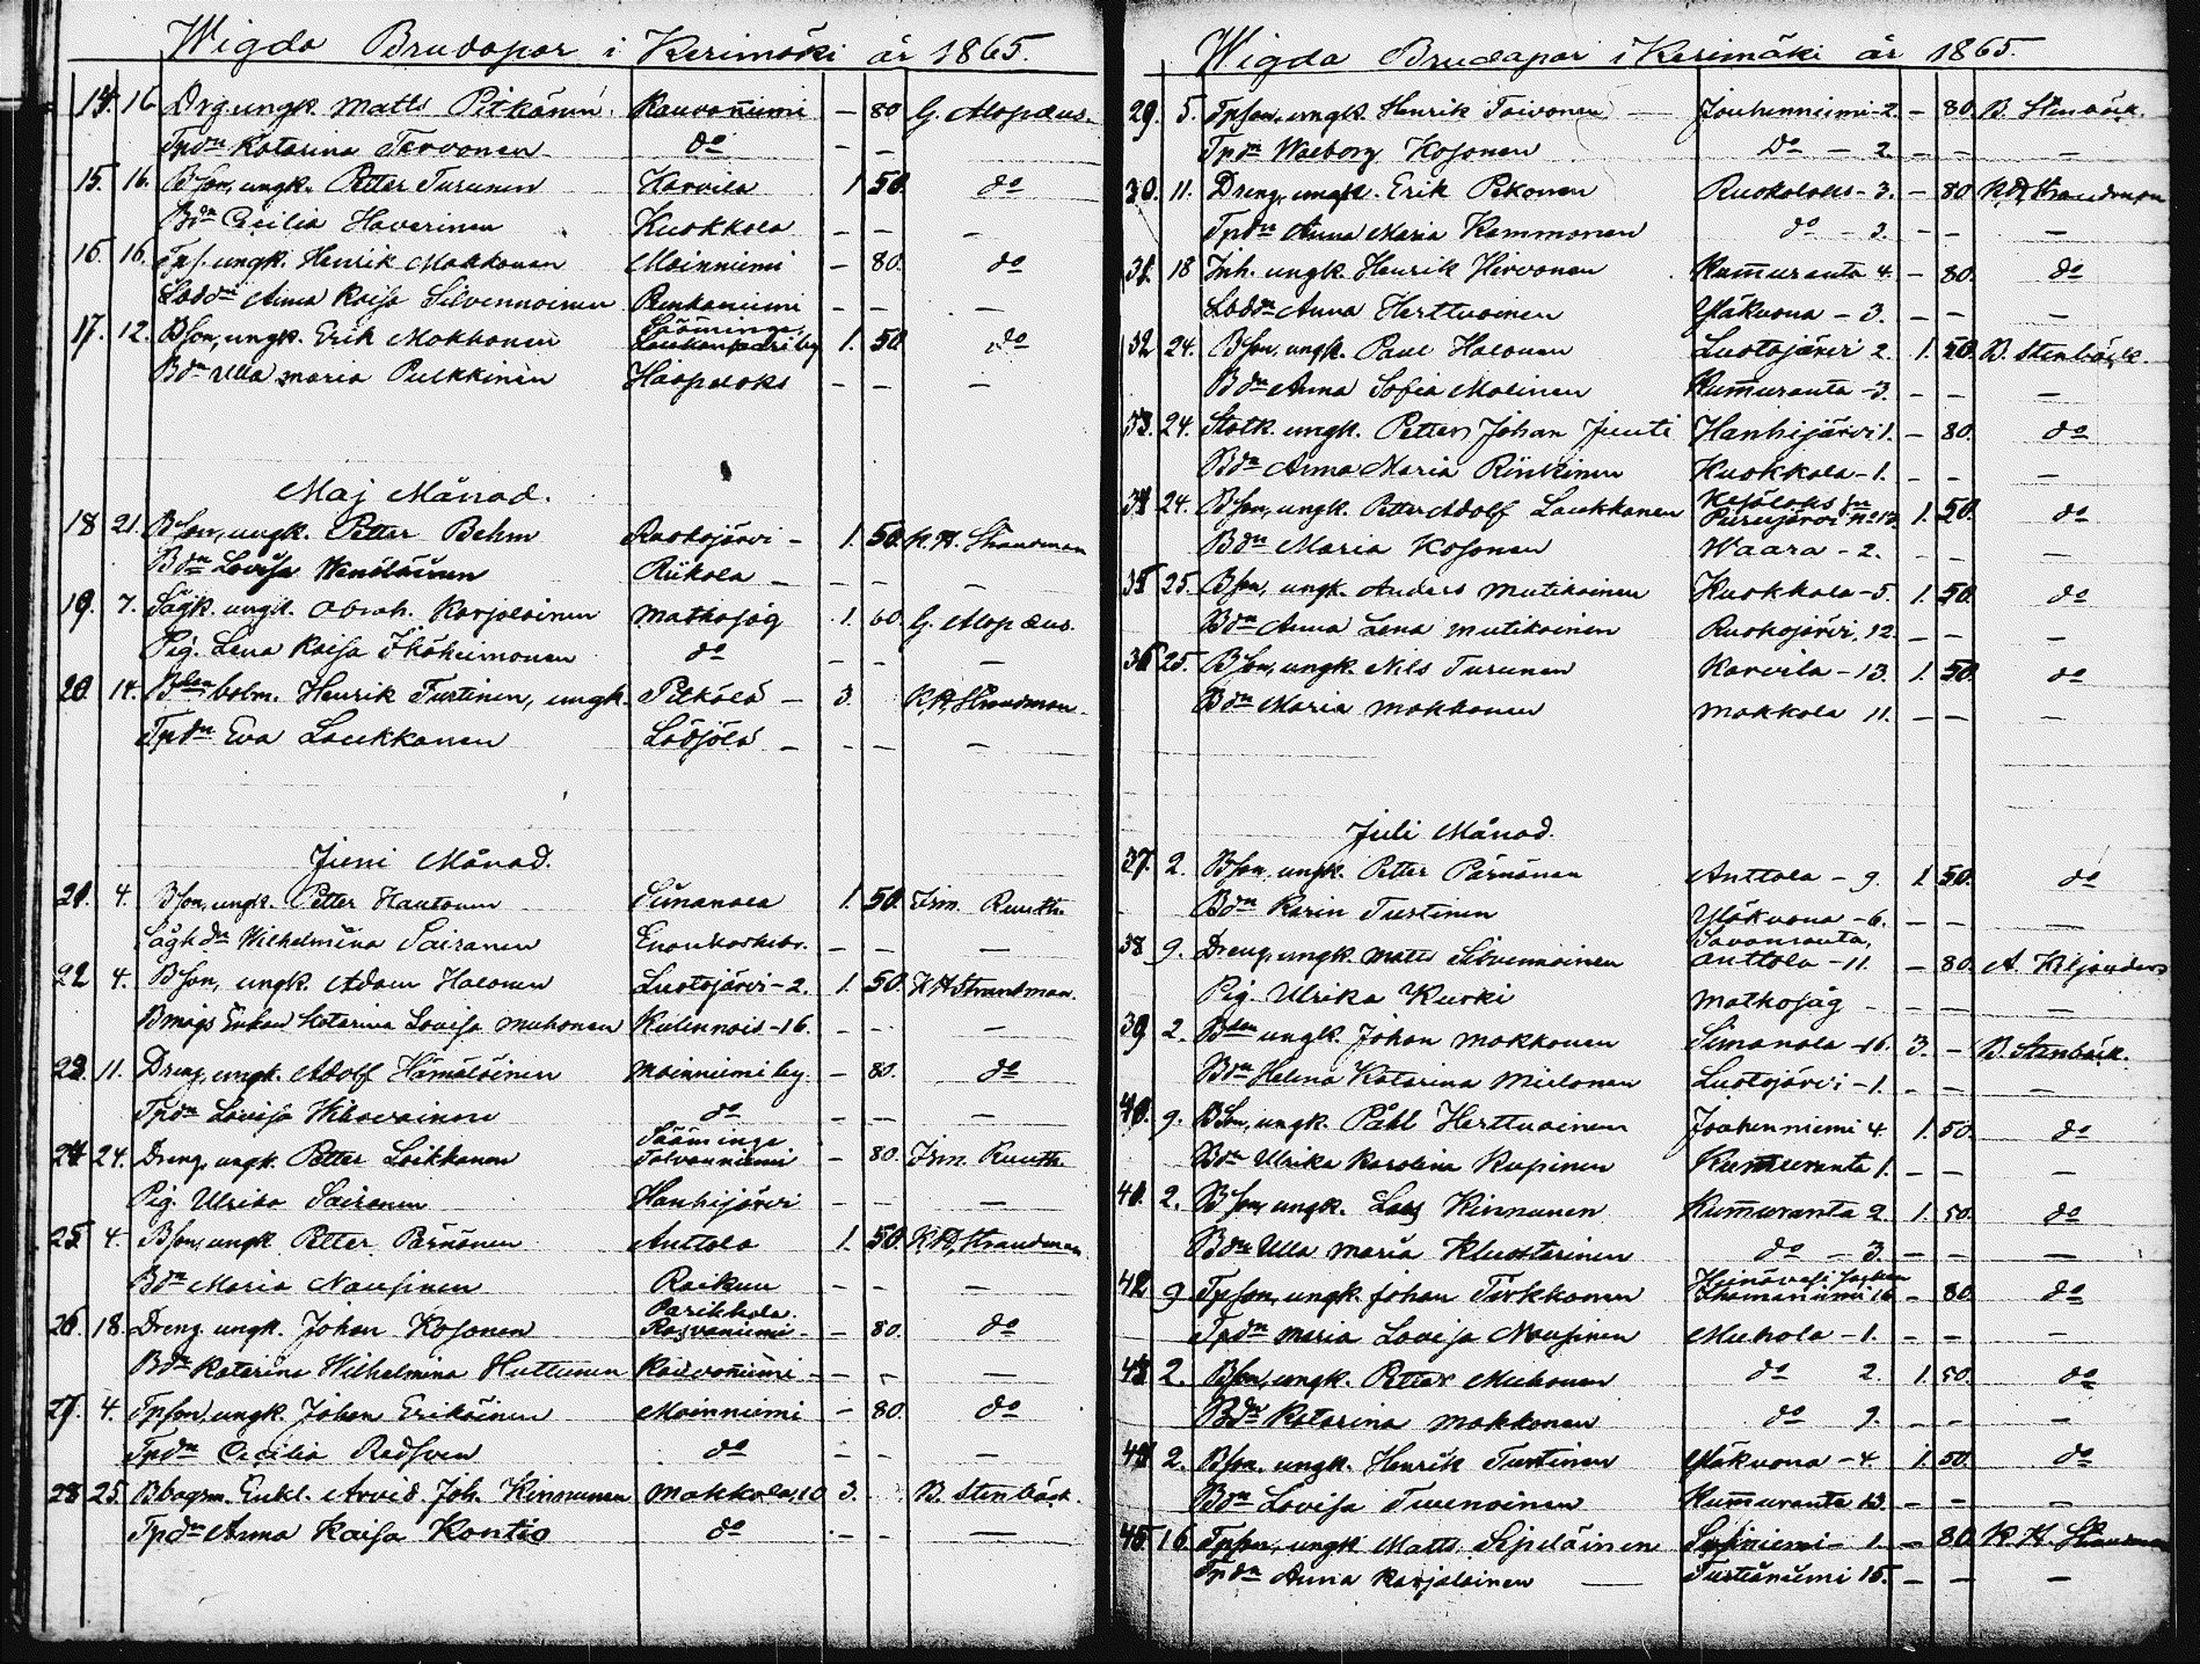 Wigda Brudapar i Kerimäki år 1865.
14. 16. Drg. ungk. Matts Pitkänen Rauvoniemi — 80 G. Alopæus.
Tpdn Katarina Tervonen do — —
15. 16. Bson, ungk. Petter Turunen Karvila 1 50. do
Bdn Cecilia Haverinen Kuokkala — — —
16. 16. Tps. ungk. Henrik Makkonen Moinniemi — 80. do
Loddn Anna Kaisa Silvennoinen Penkaniemi — — —
17. 12. Bson, ungk. Erik Makkonen Sääminge, 1. 50 do
Bdn Ulla Maria Pulkkinen Haapalaks — — —
Maj Månad.
18 21. Bson, ungk. Petter Behm Ruokojärvi — 1. 50. K. H. Strandman
Bdn Lovisa Wenäläinen Riikola — — — —
19. 7. Sågk. ungk. Abrah. Karjalainen Matkosåg 1. 60. G. Alopæus.
Pig. Lena Kaisa Ikäheimonen do — — —
20. 14. Bden bolm. Henrik Turtinen, ungk. Pitkälä — 3. K. H. Strandman
Tpdn Eva Laukkanen Lääjölä — — — —
Juni Månad.
21. 4. Bson, ungk. Petter Hautonen Simanala 1. 50. Irm. Ruuth
Sågkdn Wilhelmina Sairanen Enonkoskibr. — — —
22 4. Bson, ungk. Adam Halonen Luotojärvi — 2. 1. 50. K H Strandman.
Bmågs Enkan Katarina Lovisa Muhonen Kulennois — 16. — — —
23. 11. Dreng, ungk. Adolf Hämäläinen Moinniemi by. — 80. do
Tpdn Lovisa do — — —
24 24. Dreng, ungk. Petter Loikkanen Sääminge Tolvanniemi — 80. Irm. Ruuth
Pig. Ulrika Sairanen Hanhijärvi — — —
25. 4. Bson, ungk. Petter Pärnänen Anttola 1. 50. K. H. Strandman
Bdn Maria Nousinen Raikuu — — —
26. 18. Dreng. ungk. Johan Kosonen Parikkala. Rasvaniemi — — 80. do
Bdn Katarina Wilhelmina Huttunen Rauvoniemi — — — —
27. 4. Tpson, ungk. Johan Erikäinen Moinniemi — 80. do
Tpdn Cecilia Redsven do — — —
28 25. Bbagsm. Enkl. Arvid Joh. Kinnunen Makkola, 10 3. — B. Stenbäck.
Tpdn Anna Kaisa Kontio do — — —
Wigda Brudapar i Kerimäki år 1865.
29. 5. Tpson, ungk. Henrik Toivonen Jouhenniemi — 2. — 80. B. Stenbäck.
Tpdn Walborg Kosonen Do — 2. — — —
30. 11. Dreng, ungk. Erik Pekonen Ruokolaks — 3. — 80 K. H. Strandman
Tpdn Anna Maria Kammonen do — 3. — — —
31. 18 Inh. ungk. Henrik Hirvonen Kum̄uranta 4. — 80. do
Loddn Anna Herttuainen Yläkuona — 3. — — —
32 24. Bson, ungk. Paul Halonen Luotojärvi 2. 1. 50. B. Stenbäck.
Bdn Anna Sofia Malinen Kum̄uranta — 3. — — —
33. 24. Statk. ungk. Petter Johan Juuti Hanhijärvi 1. — 80. do
Bdn Anna Maria Rinkinen Kuokkala — 1. — — —
34 24. Bson, ungk. Petter Adolf Laukkanen Kesälaks Purujärvi No 13. 1. 50. do
Bdn Maria Kosonen Waara — 2. — — —
35 25. Bson, ungk. Anders Mutikainen Kuokkala — 5. 1. 50. do
Bdn Anna Lena Mutikainen Ruokojärvi, 12. — — —
36 25. Bson, ungk. Nils Turunen Karvila — 13. 1. 50 do
Bdn Maria Makkonen Makkola 11. — — —
Juli Månad.
37. 2. Bson, ungk. Petter Pärnänen Anttola — 9. 1 50. do
Bdn Karin Turtinen Yläkuona — 6. — — —
38 9. Dreng, ungk. Matts Silvennoinen Savonranta, Anttola — 11. — 80. A. Kiljander
Pig. Ulrika Kurki Matkosåg — — —
39 2. Bden ungk. Johan Makkonen Simanala — 16. 3. — B. Stenbäck.
Bdn Helena Katarina Mielonen Luotojärvi — 1. — — —
40. 9. Bson, ungk. Påhl Herttuainen Jouhenniemi 4. 1. 50. do
Bdn Ulrika Karolina Kupinen Kum̄uranta 1. — — —
41. 2. Bson, ungk. Lars Kinnunen Kum̄uranta 2. 1. 50. do
Bdn Ulla Maria Kluostarinen do — 3. — — —
42 9 Tpson, ungk. Johan Tirkkonen Heinävesi 16 — 80. do
Tpdn Maria Lovisa Nousinen Muhola — 1. — — —
43 2. Bson, ungk. Petter Muhonen do 2. 1. 50. do
Bdn Katarina Makkonen do 9. — — —
44 2. Bson, ungk. Henrik Turtinen Yläkuona — 4. 1. 50. do
Bdn Lovisa Tuunainen Kum̄uranta 13. — — —
45 16. Tpson, ungk. Matts Silpiläinen — 1. — 80. K. H. Strandman
Tpdn Anna Karjalainen — Turtianiemi 15. — — —